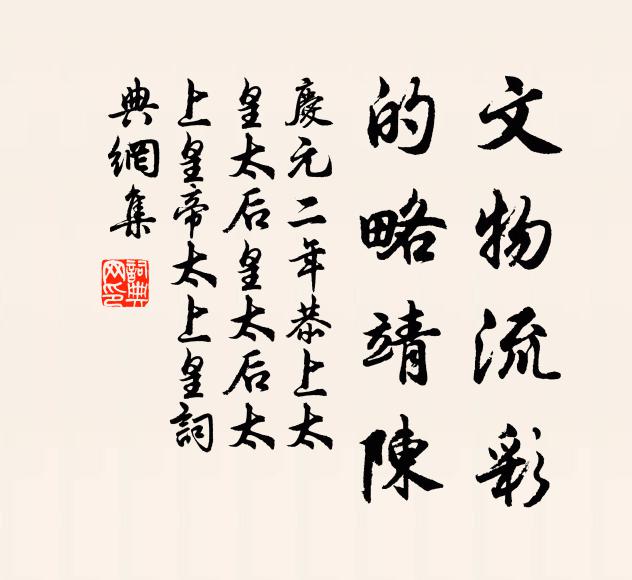 文物流彩
的略靖陳
慶元二年恭上太
皇太后皇太后太
上皇帝太上皇詞
典網集
詞典
网印